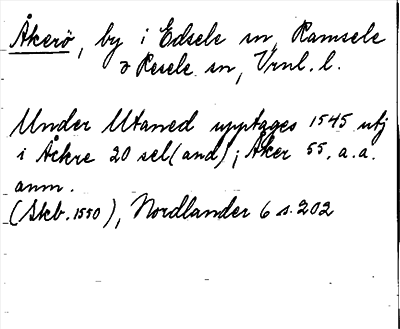 Åkerö, by i Edsele sn, Ramsele
& Resele sn, Vrnl. l.
Under Utaned upptages 1545 utj
i Åckre 20 sel(and); Åker 55. a.a.
anm.
(Skb. 1550), Nordlander 6 s. 202